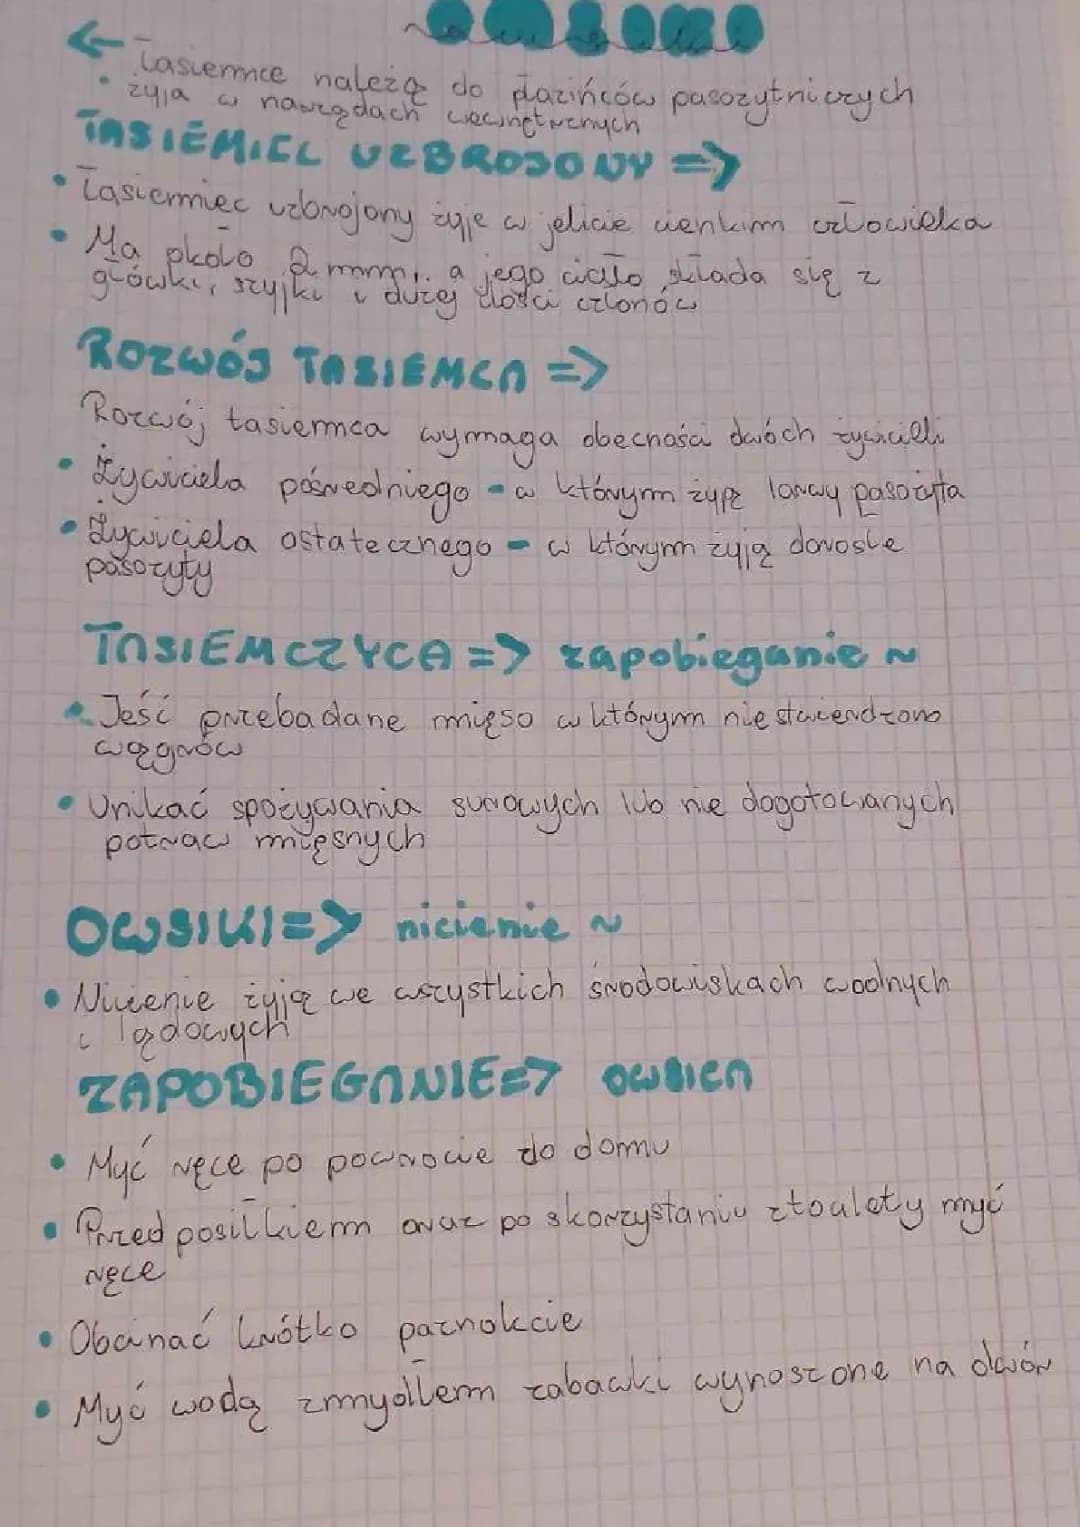 Tasiemce należą do płazińców pasożytniczych
• żyja w narządach wewnętrznych
TASIEMIEC UZBROJONY =>
• Tasiemiec uzbrojony żyje w jelicie cienkim człowieka
• Ma około 2 mm, a jego ciało składa się z
główki, szyjki i dużej ilości członów
ROZWÓJ TASIEMCA =>
Rozwój tasiemca wymaga obecności dwóch żywicieli
• Żywiciela pośredniego - w którym żyję larwy pasożyta
• Żywiciela ostatecznego - w którym żyją dorosłe
pasożyty
TASIEMCZYCA => zapobieganie ~
• Jeść przebadane mięso w którym nie stwierdzono
wągrów
• Unikać spożywania surowych lub nie dogotowanych
potraw mięsnych
OWSIKI => nicienie ~
• Nicienie żyją we wszystkich środowiskach wodnych
i lądowych
ZAPOBIEGANIE => OWSICA
• Myć ręce po powrocie do domu
• Przed posiłkiem oraz po skorzystaniu z toalety myć
ręce
• Obcinać krótko paznokcie
• Myć wodą z mydłem zabawki wynoszone na dwór